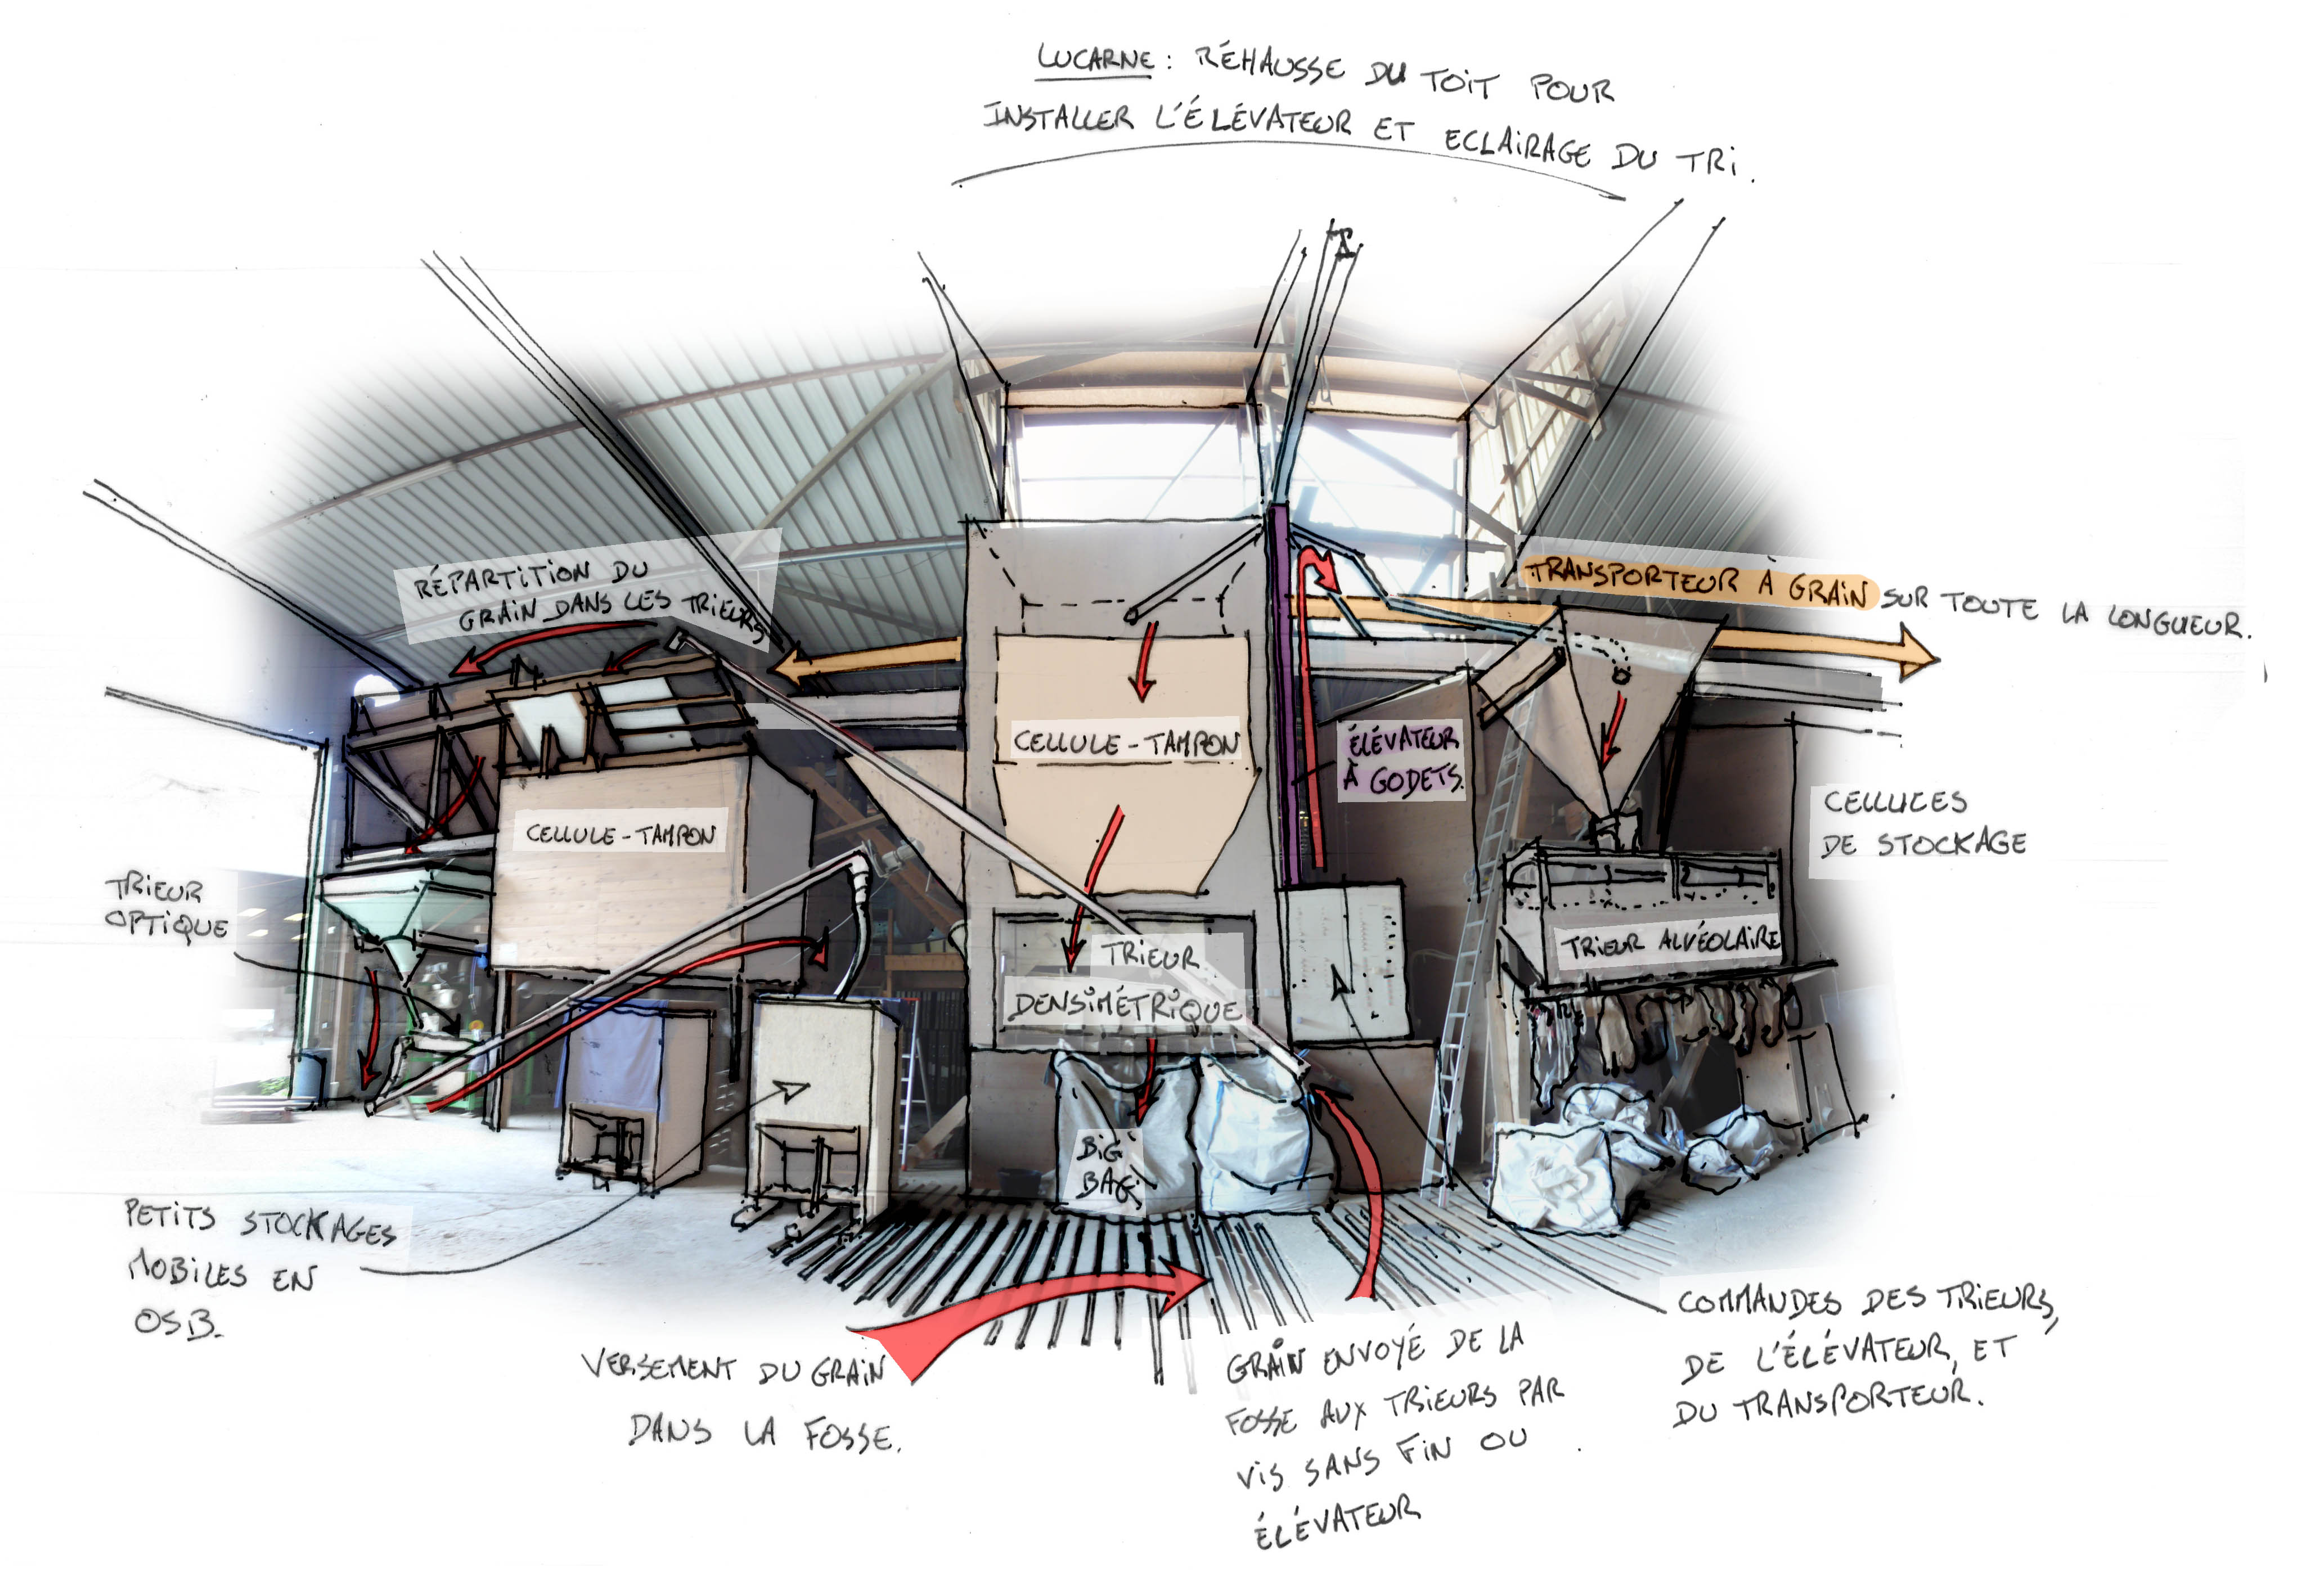 LUCARNE : RÉHAUSSE DU TOIT POUR
INSTALLER L'ÉLÉVATEUR ET ECLAIRAGE DU TRI.
RÉPARTITION DU
GRAIN DANS LES TRIEURS
TRANSPORTEUR À GRAIN SUR TOUTE LA LONGUEUR.
CELLULE-TAMPON
ÉLÉVATEUR
À GODETS.
CELLULE-TAMPON
CELLULES
DE STOCKAGE
TRIEUR
OPTIQUE
TRIEUR
DENSIMÉTRIQUE
TRIEUR ALVÉOLAIRE
BIG
BAG
PETITS STOCKAGES
MOBILES EN
OSB.
VERSEMENT DU GRAIN
DANS LA FOSSE.
GRAIN ENVOYÉ DE LA
FOSSE AUX TRIEURS PAR
VIS SANS FIN OU
ÉLÉVATEUR
COMMANDES DES TRIEURS,
DE L'ÉLÉVATEUR, ET
DU TRANSPORTEUR.